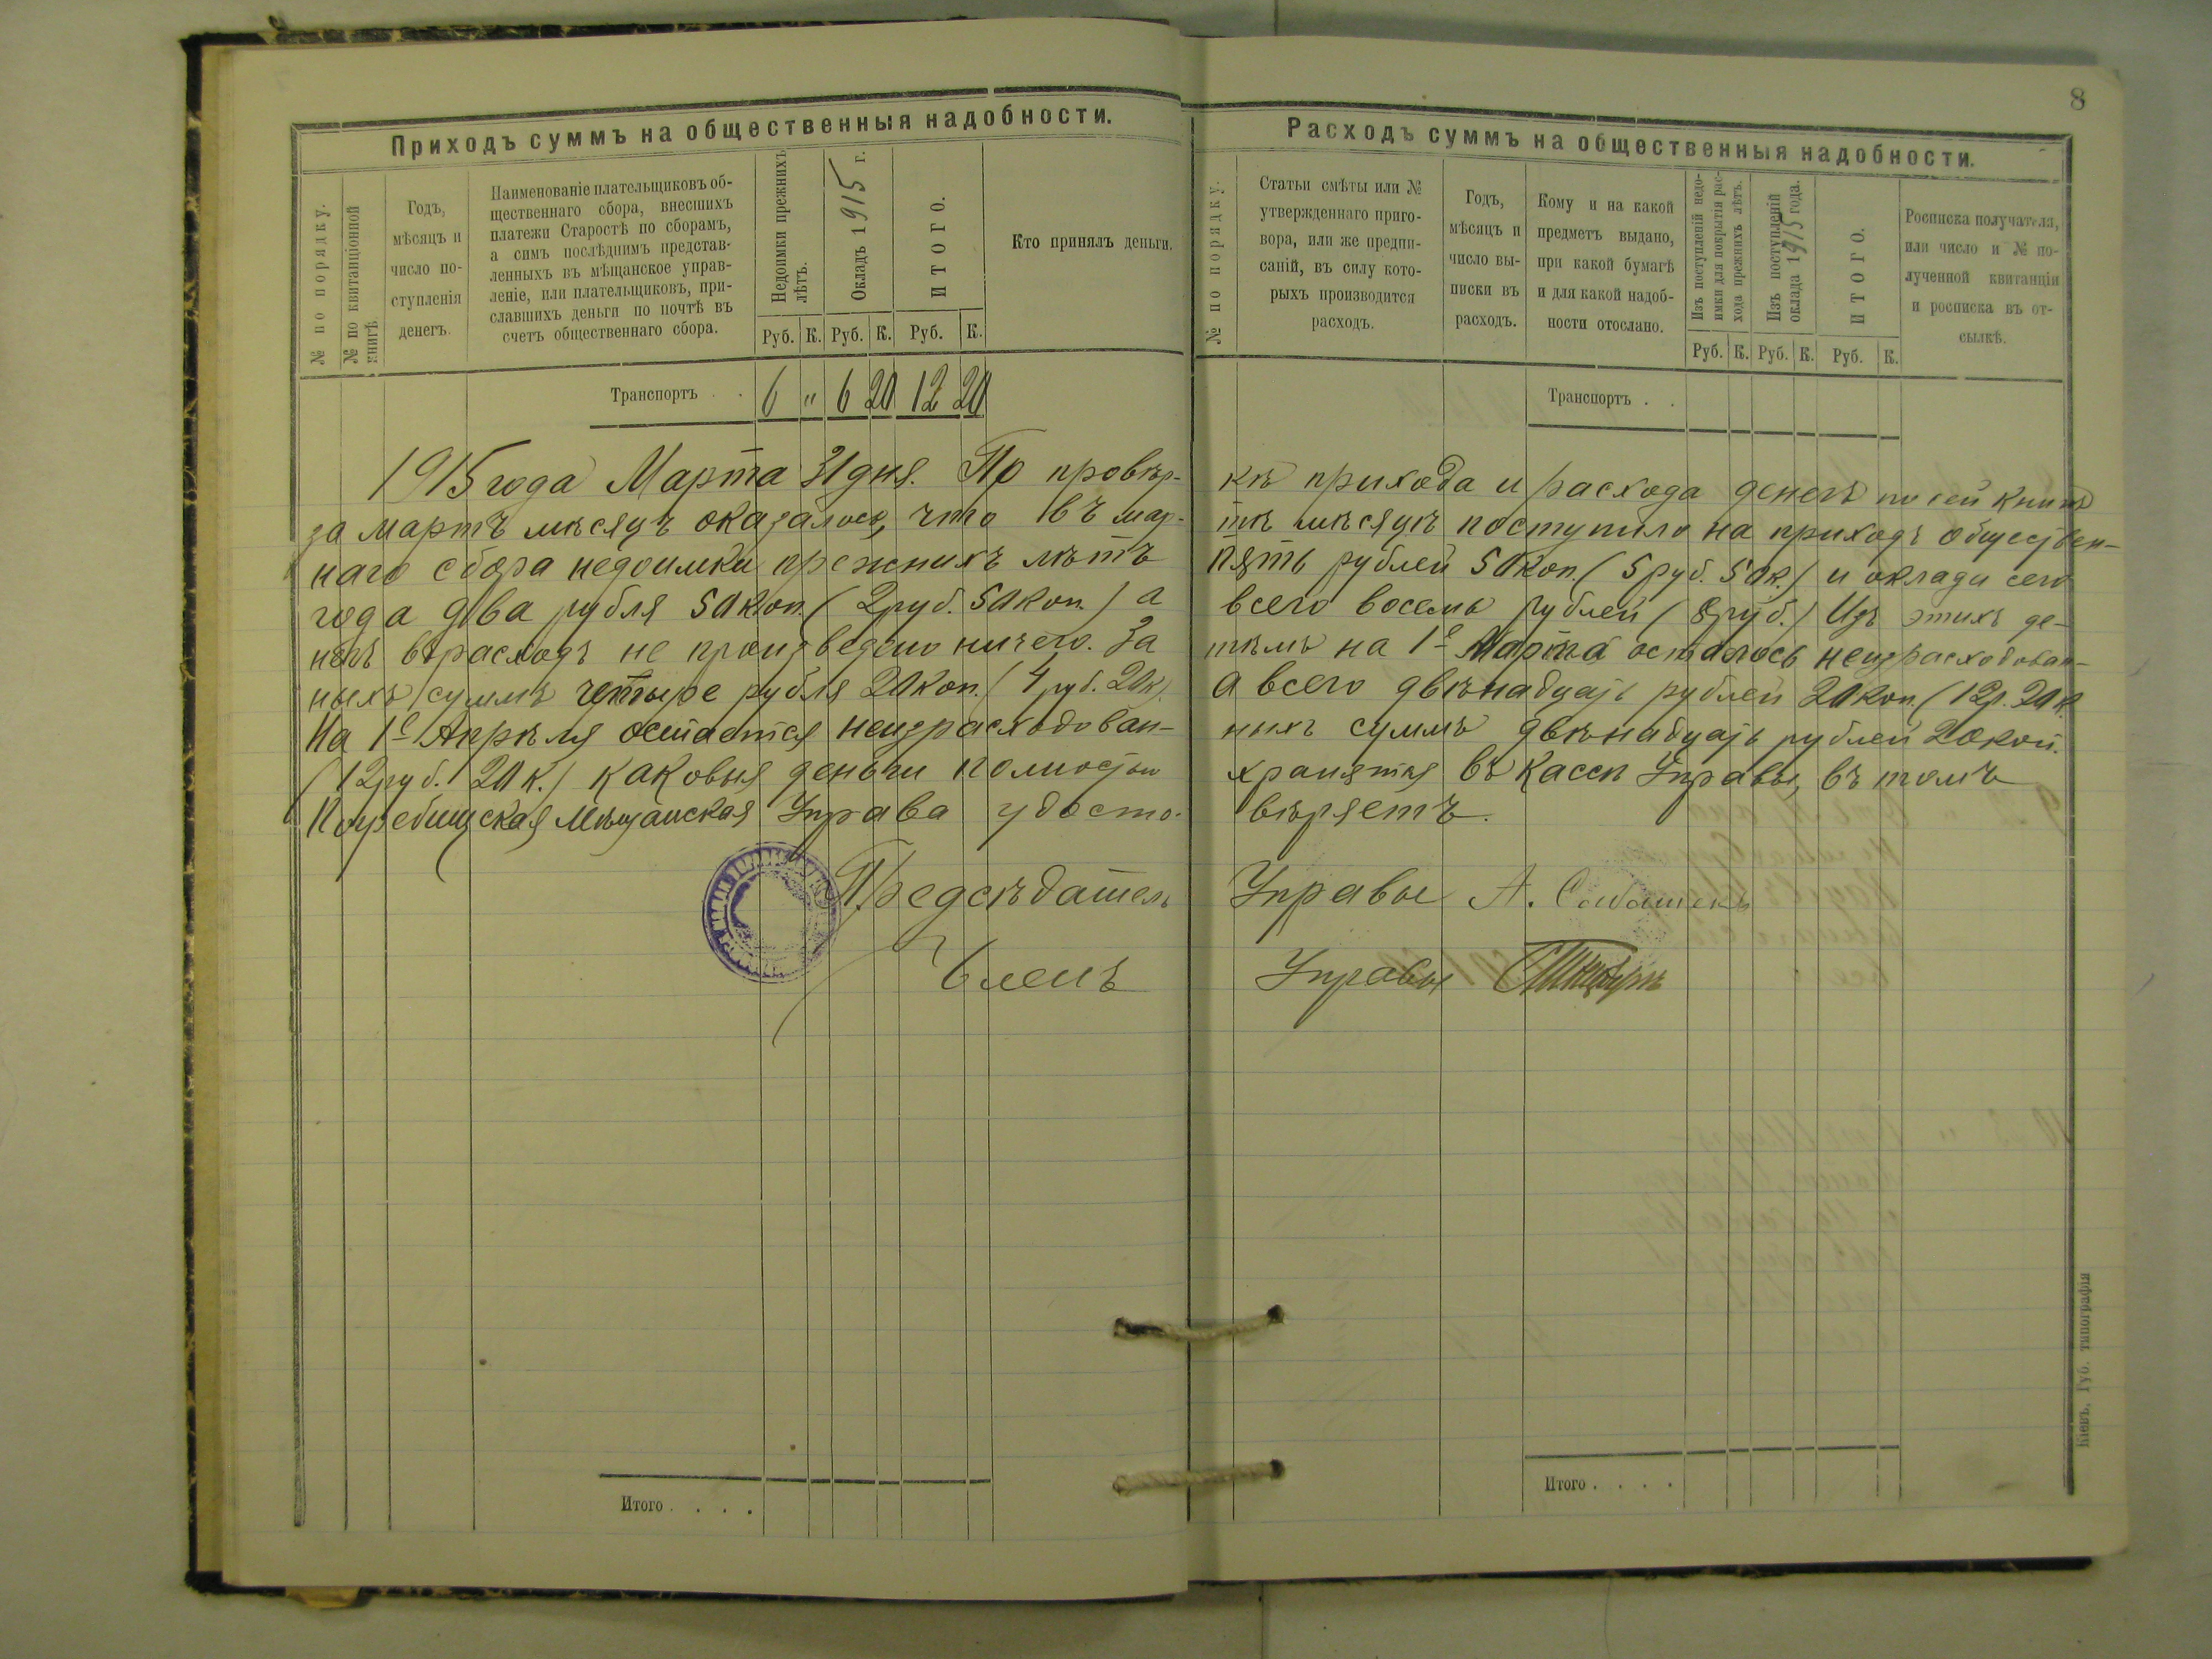 8
Приходъ суммъ на общественныя надобности.
№ по порядку.
№ по квитанціонной
книгѣ.
Годъ,
мѣсяцъ и
число по-
ступленія
денегъ.
Наименованіе плательщиковъ об-
щественнаго сбора, внесшихъ
платежи Старостѣ по сборамъ,
а симъ послѣднимъ представ-
ленныхъ въ мѣщанское управ-
леніе, или плательщиковъ, при-
славшихъ деньги по почтѣ въ
счетъ общественнаго сбора.
Недоимки прежнихъ
лѣтъ.
Окладъ 1915 г.
ИТОГО.
Руб. К. Руб. К. Руб. К.
Кто принялъ деньги.
Транспортъ . . 6 " 6 20 12 20
Расходъ суммъ на общественныя надобности.
№ по порядку.
Статьи смѣты или №
утвержденнаго приго-
вора, или же предпи-
саній, въ силу кото-
рыхъ производится
расходъ.
Годъ,
мѣсяцъ и
число вы-
писки въ
расходъ.
Кому и на какой
предметъ выдано,
при какой бумагѣ
и для какой надоб-
ности отослано.
Изъ поступленій недо-
имки для покрытія рас-
хода прежнихъ лѣтъ.
Изъ поступленій
оклада 1915 года.
ИТОГО.
Руб. К. Руб. К. Руб. К.
Росписка получателя,
или число и № по-
лученной квитанціи
и росписка въ от-
сылкѣ.
Транспортъ . .
1915 года Марта 31 дня. По провѣр- кѣ прихода и расхода денегъ по сей книгѣ
за мартъ мѣсяцъ оказалось, что въ мар- тѣ мѣсяцѣ поступило на приходъ обществен-
наго сбора недоимки прежнихъ лѣтъ пять рублей 50 коп. (5 руб. 50 к.) и оклади сего
года два рубля 50 коп. (2 руб. 50 коп.) а всего восемь рублей (8 руб.) Изъ этихъ де-
негъ въ расходъ не произведено ничего. За тѣмъ на 1е Марта осталось неизрасходован-
ныхъ суммъ четыре рубля 20 коп. (4 руб. 20 к.) а всего двѣнадцать рублей 20 коп. (12 р. 20 к.
На 1е Апрѣля остается неизрасходован- ныхъ суммъ двѣнадцать рублей 20 коп.
(12 руб. 20 к.) каковыя деньги полностью хранятся въ кассѣ Управы, въ томъ
Погребищская Мѣщанская Управа удосто- вѣряетъ.
Предсѣдатель Управы А.
Членъ Управы
Итого . . . .
Итого . . . .
Кіевъ, Губ. типографія